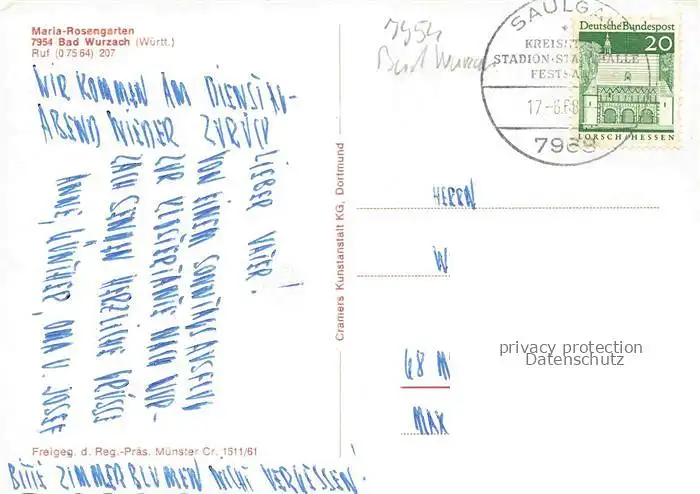 Maria-Rosengarten
7954 Bad Wurzach (Württ.)
Ruf (0 75 64) 207
WIR KOMMEN AM DIENSTAG-
ABEND WIEDER ZURÜCK
LIEBER VATER!
VON EINEM SONNTAGSAUSFLUG
ZUR KLOSTERTANTE NACH WUR-
ZACH SENDEN HERZLICHE GRÜSSE
ANNE, GÜNTHER, OMA U. JOSEF
Freigeg. d. Reg.-Präs. Münster Cr. 1511/61
BITTE ZIMMERBLUMEN NICHT VERGESSEN!
Cramers Kunstanstalt KG, Dortmund
7954
Bad Wurzach
SAULGAU
STADION·STADTHALLE
17.-6.68
7968
Deutsche Bundespost
20
LORSCH/HESSEN
HERRN
W
68 M
MAX
privacy protection
Datenschutz